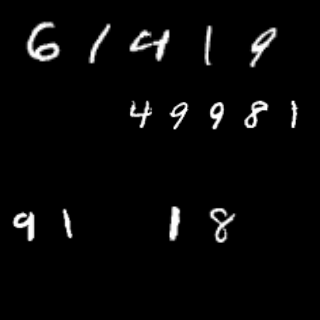 61419
49981
91 18